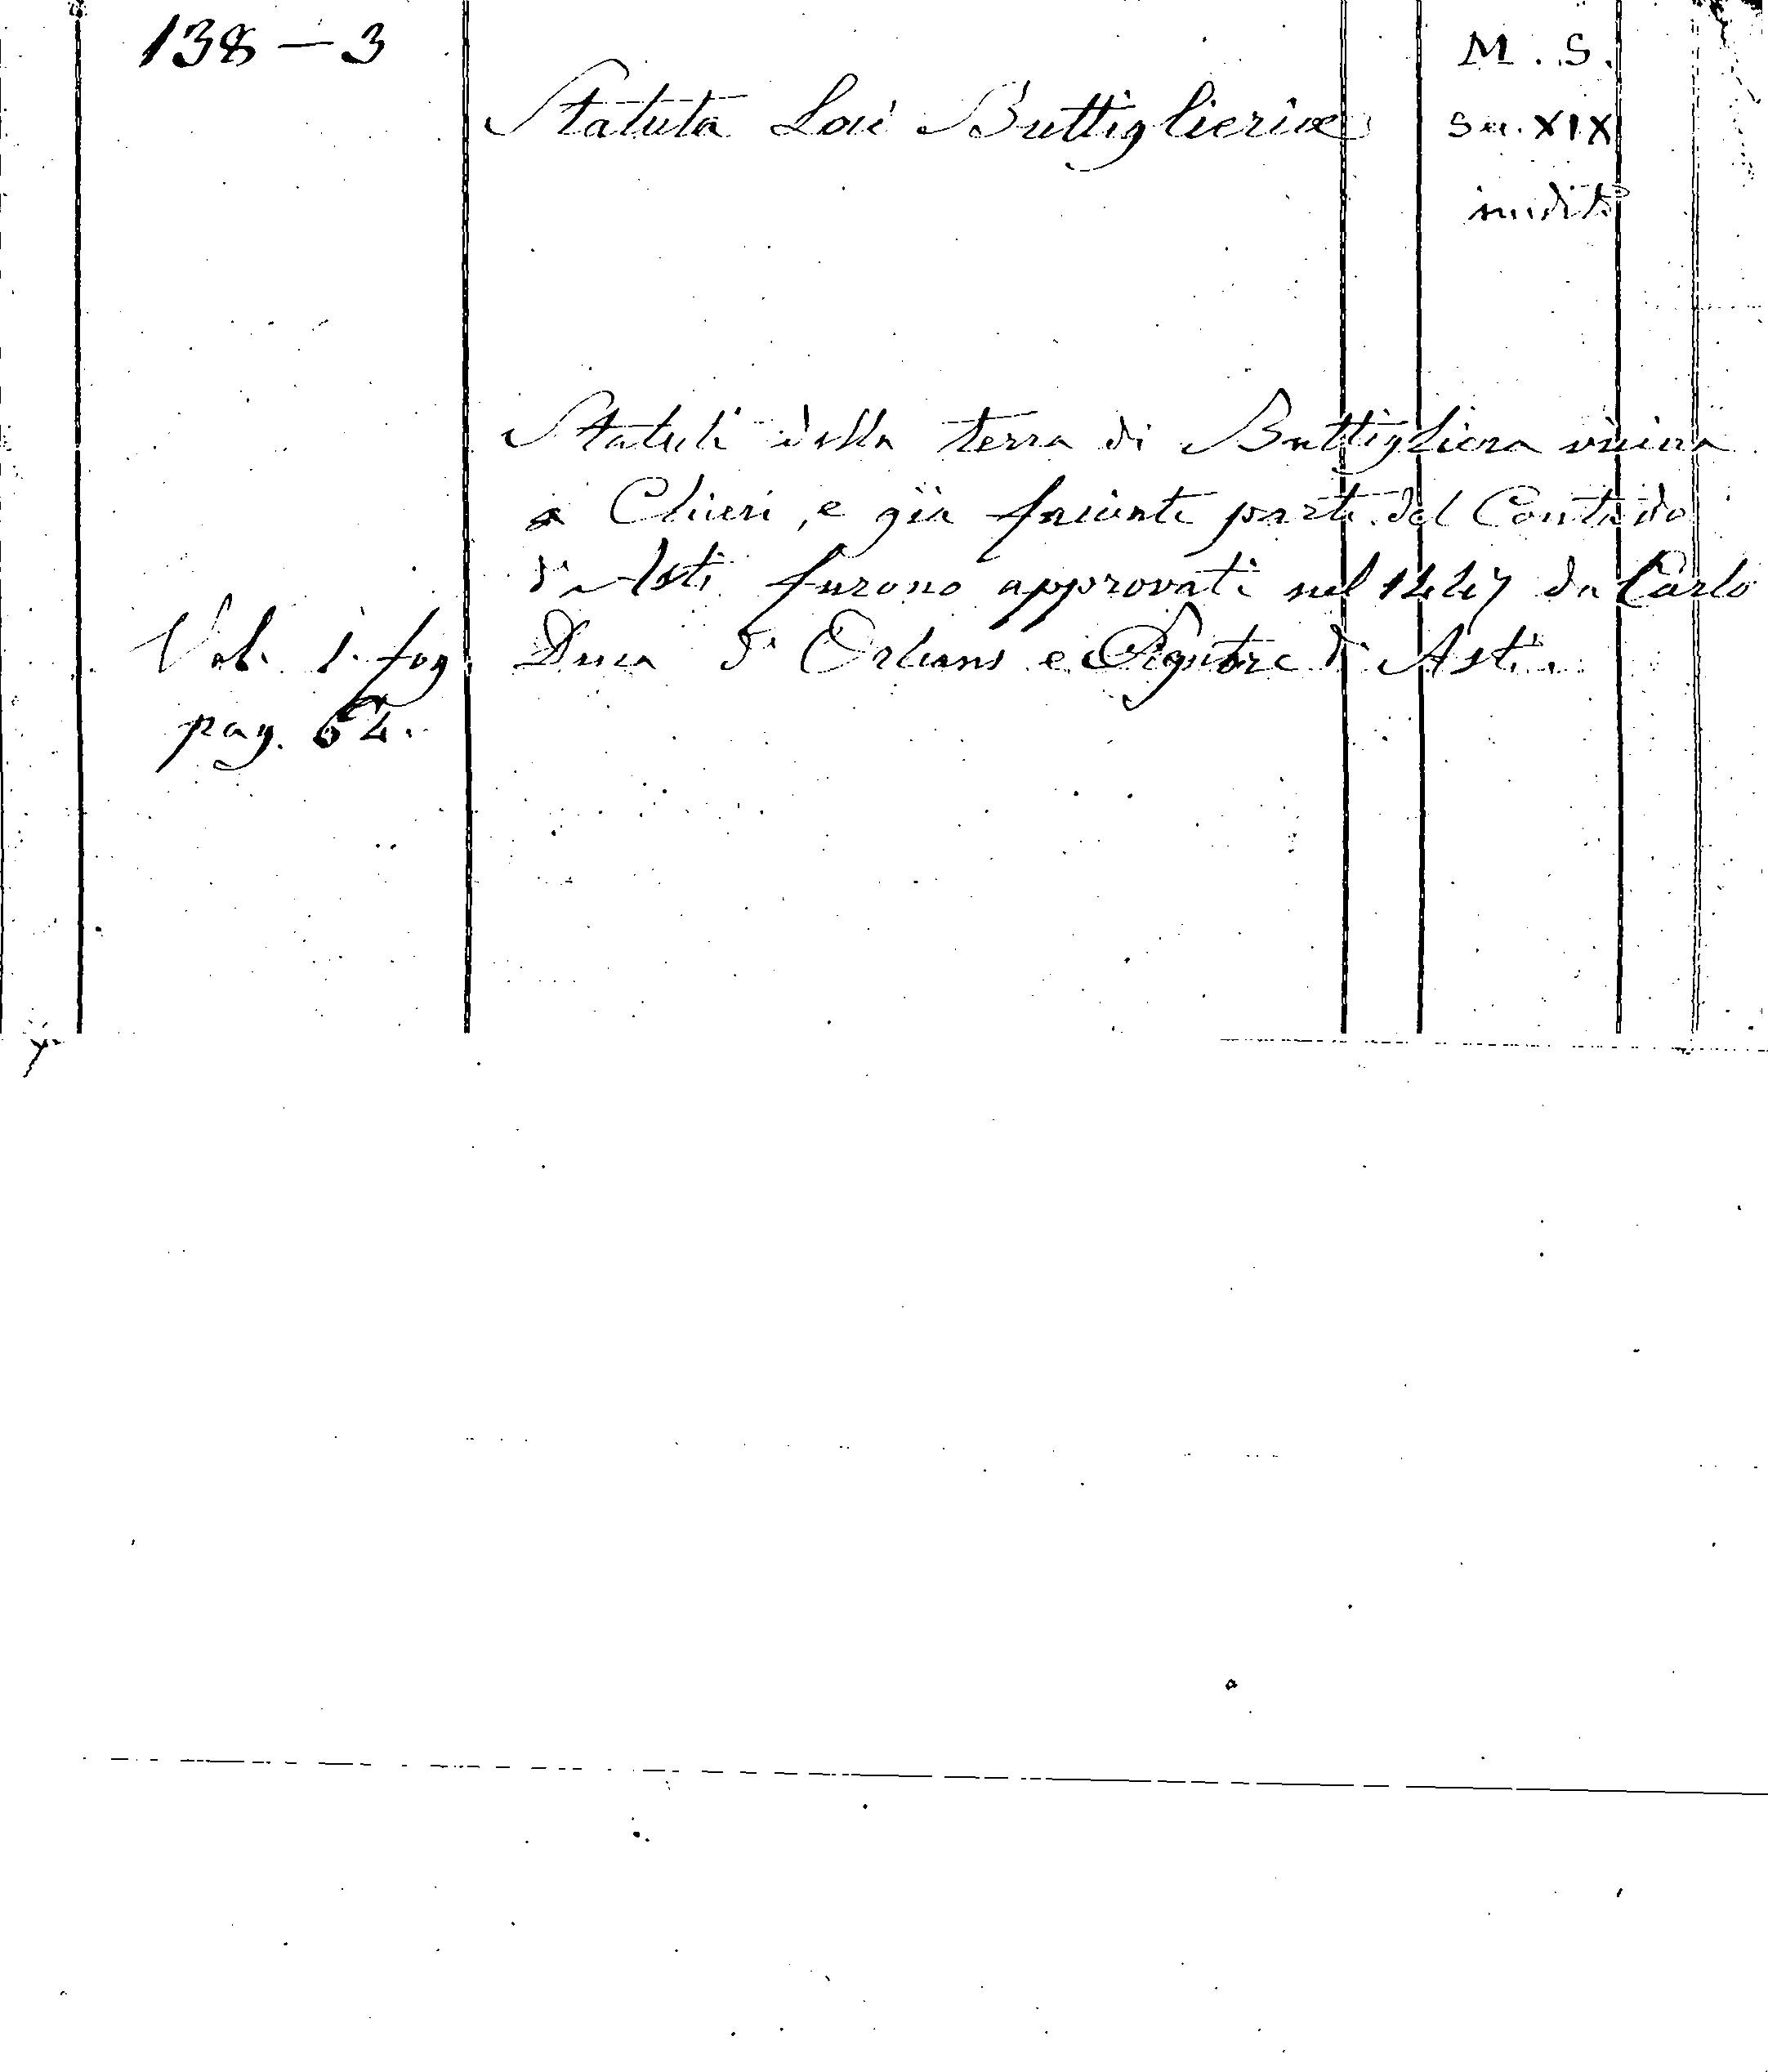 138 — 3
Statuta Loci Buttiglieriæ
M. S.
Sec. XIX
inedito
Statuti della terra di Buttigliera vicina
a Chieri, e già faciente parte del Contado
d'Asti furono approvati nel 1447 da Carlo
Duca d'Orleans e Signore di Asti.
Vol. 1. fog.
pag. 64.